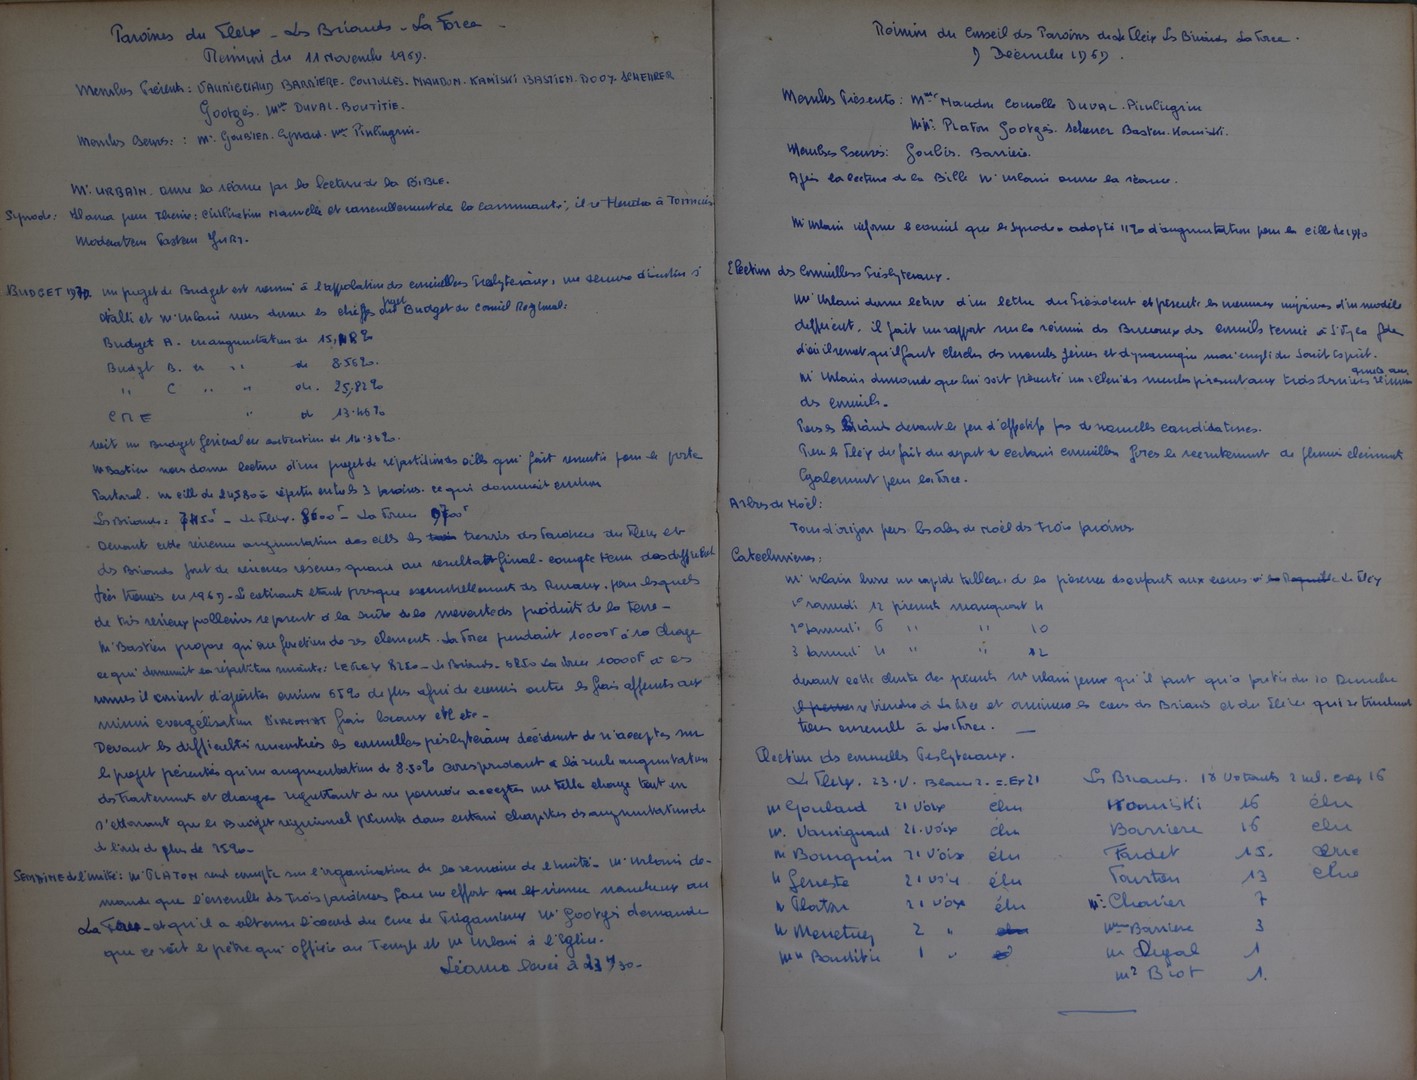 Paroisses du Fleix - Les Briands - La Force -
Réunion du 11 Novembre 1969.
Membres Présents: VAURIGNAUD BARRIERE - COMOLLES - MANDON - KAMISKI BASTIEN - DOOY - SCHERRER
Gootgès. Mme DUVAL - BOUTITIE.
Membres Excusés: : Mr. GOULBIER. Eynard. Mme Pimbugrin.
Mr URBAIN. ouvre la séance par la lecture de la BIBLE.
Synode: Il aura pour Thème: Civilisation Nouvelle et rassemblement de la communauté, il se tiendra à Tonneins
Modérateur Pasteur JURY.
BUDGET 1970. un projet de Budget est soumis à l'approbation des conseillers Presbytéraux, une
et Mr Urbain nous donne les chiffres du projet Budget du Conseil Régional:
Budget A. en augmentation de 15,18 %
Budget B. en " " de 8.56%.
" C " " de. 25,82%
CME " de 13.45%
soit un Budget Général en de 14.36%.
Mr Bastien nous donne lecture d'un projet de répartition des cibles qui fait ressortir pour le poste
Pastoral. une cible de 24580 à répartir entre les 3 paroisses. ce qui donnerait environ
Les Briands: 7450F - Le Fleix. 8600F - La Force 9700F
Devant cette sérieuse augmentation des cibles les trésoriers des Paroisses du Fleix et
des Briands font de sérieuses réserves quant au résultat final - compte tenu des difficultés
déjà trouvées en 1969 - Les cotisants étant presque essentiellement des Ruraux, pour lesquels
de très sérieux problèmes se posent à la suite de la mévente des produits de la terre -
Mr Bastien propose qu'en fonction de ces éléments. La Force prendrait 10000F à sa charge
ce qui donnerait la répartition suivante: LE FLEIX 8250 - Les Briands - 6250 La Force 10000F à ces
sommes il convient d'ajouter environ 65% de plus afin de couvrir outre les frais afférents aux
mission évangélisation DIACONAT frais locaux etc etc -
Devant les difficultés rencontrées les conseillers presbytéraux décident de n'accepter sur
le projet présenté qu'une augmentation de 8.50% correspondant à la seule augmentation
des Traitements et Charges regrettant de ne pouvoir accepter une telle charge tout en
s'étonnant que le Budget régional présente dans certains chapitres des augmentations de
de plus de 25% -
SEMAINE de l'Unité: Mr PLATON rend compte sur l'organisation de la semaine de l'unité - Mr Urbain de-
mande que l'ensemble des Trois paroisses fasse un effort et vienne nombreux au
La Force - et qu'il a obtenu l'accord du Curé de Prigonrieux Mr Gootgès demande
que ce soit le prêtre qui officie au Temple et Mr Urbain à l'Eglise.
Séance levée à 23 H 30 -
Réunion du Conseil des Paroisses du Le Fleix Les Briands La Force.
9 Décembre 1969.
Membres Présents: Mmes Mandon Comolle DUVAL - Pimbugrin
MM: Platon Gootgès. Scherrer Bastien. Kamiski.
Membres Excusés: Goulbier. Barrière.
Après la lecture de la Bible Mr Urbain ouvre la séance.
Mr Urbain informe le conseil que le Synode a adopté 11% d'augmentation pour la cible de 1970
Election des Conseillers Presbytéraux.
Mr Urbain donne lecture d'une lettre du Président et présente les nouveaux imprimés d'un modèle
différent, il fait un rapport sur la réunion des Bureaux des conseils tenue à
d'où il ressort qu'il faut chercher des membres jeunes et dynamiques mais rempli du Saint Esprit.
Mr Urbain demande que lui soit présenté un relevé des membres présent aux trois dernières réunions
des conseils.
Pour les Briands devant le peu d'effectifs pas de nouvelles candidatures.
Pour le Fleix du fait du départ de certains conseillers forcer le recrutement de plusieurs éléments
également pour la Force.
Arbres de Noël:
Tour d'horizon pour les arbres de noël des trois paroisses
Catéchumènes:
Mr Urbain brosse un rapide tableau de la présence des enfants aux cours Le Fleix
1er samedi 12 présents manquant 4
2e samedi 6 " " 10
3 samedi 4 " " 12
devant cette chute des présents Mr Urbain pense qu'il faut qu'à partir du 10 Décembre
se viendra à La Force et les cours des Briands et du Fleix qui se tiendront
tous ensemble à La Force. —
Election des conseillers Presbytéraux.
Le Fleix. 23. V. Blanc 2. = Ex 21
Mr Goulard 21 Voix élu
Mr. Vaurignaud 21. voix élu
Mr Bourguin 21 Voix élu
Mr Geneste 21 voix élu
Mr Platon 21 voix élu
Mr Menetrey 2 "
Mme Bouditie 1 "
Les Briands. 18 Votants 2 nul. exp 16
Kamiski 16 élu
Barriere 16 élu
Faidet 15. élue
Tourton 13 élue
Mr: Charier 7
Mme Barriere 3
Mr Degal 1
Mr Biot 1.